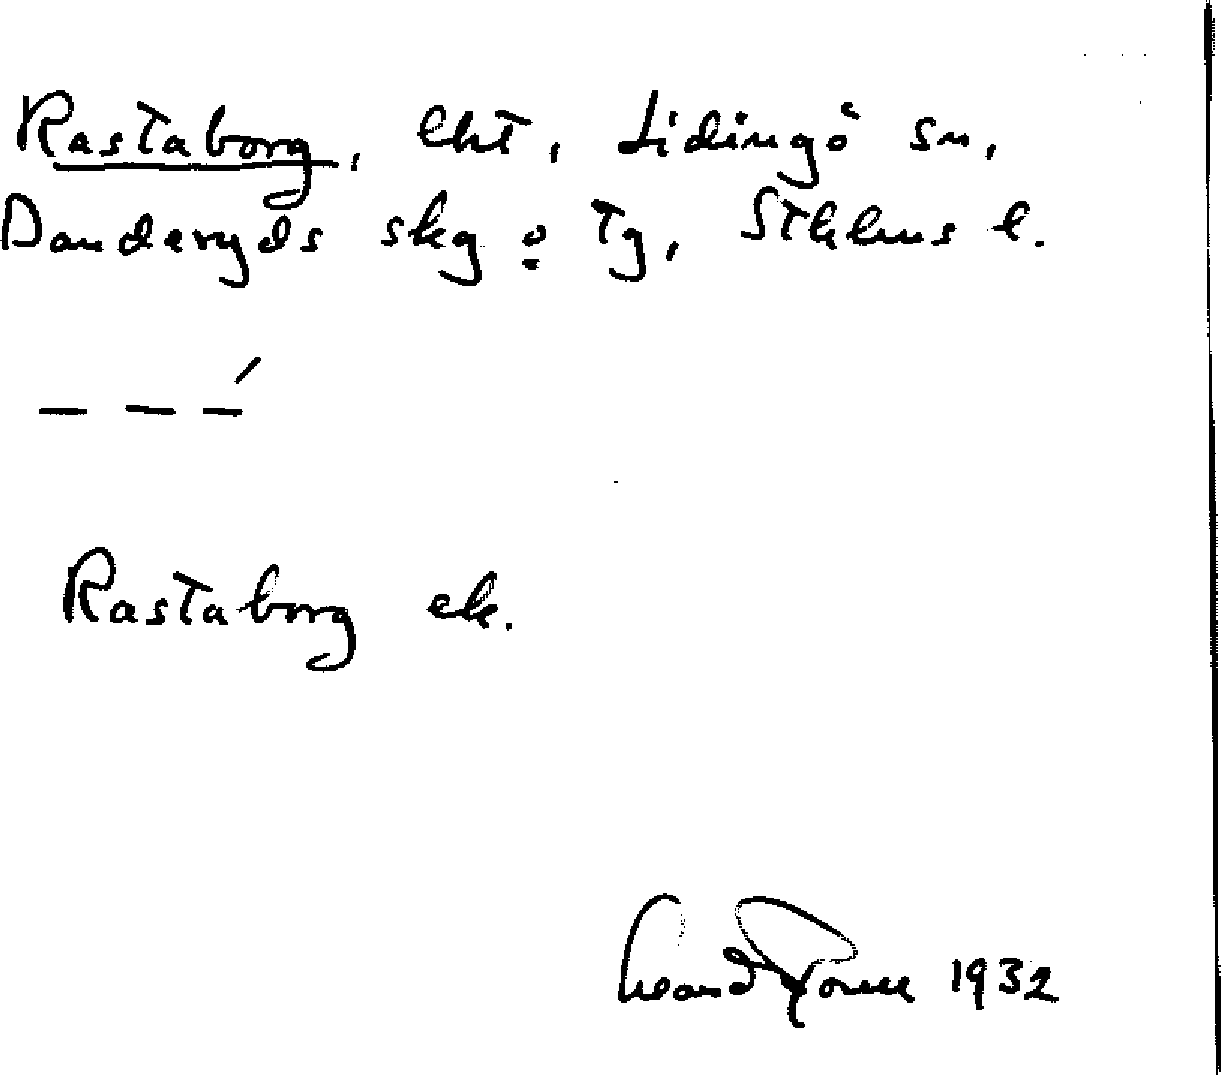 Rastaborg, lht, Lidingö sn,
Danderyds skg o Tg, Sthlms l.
— — —́
Rastaborg ek.
1932